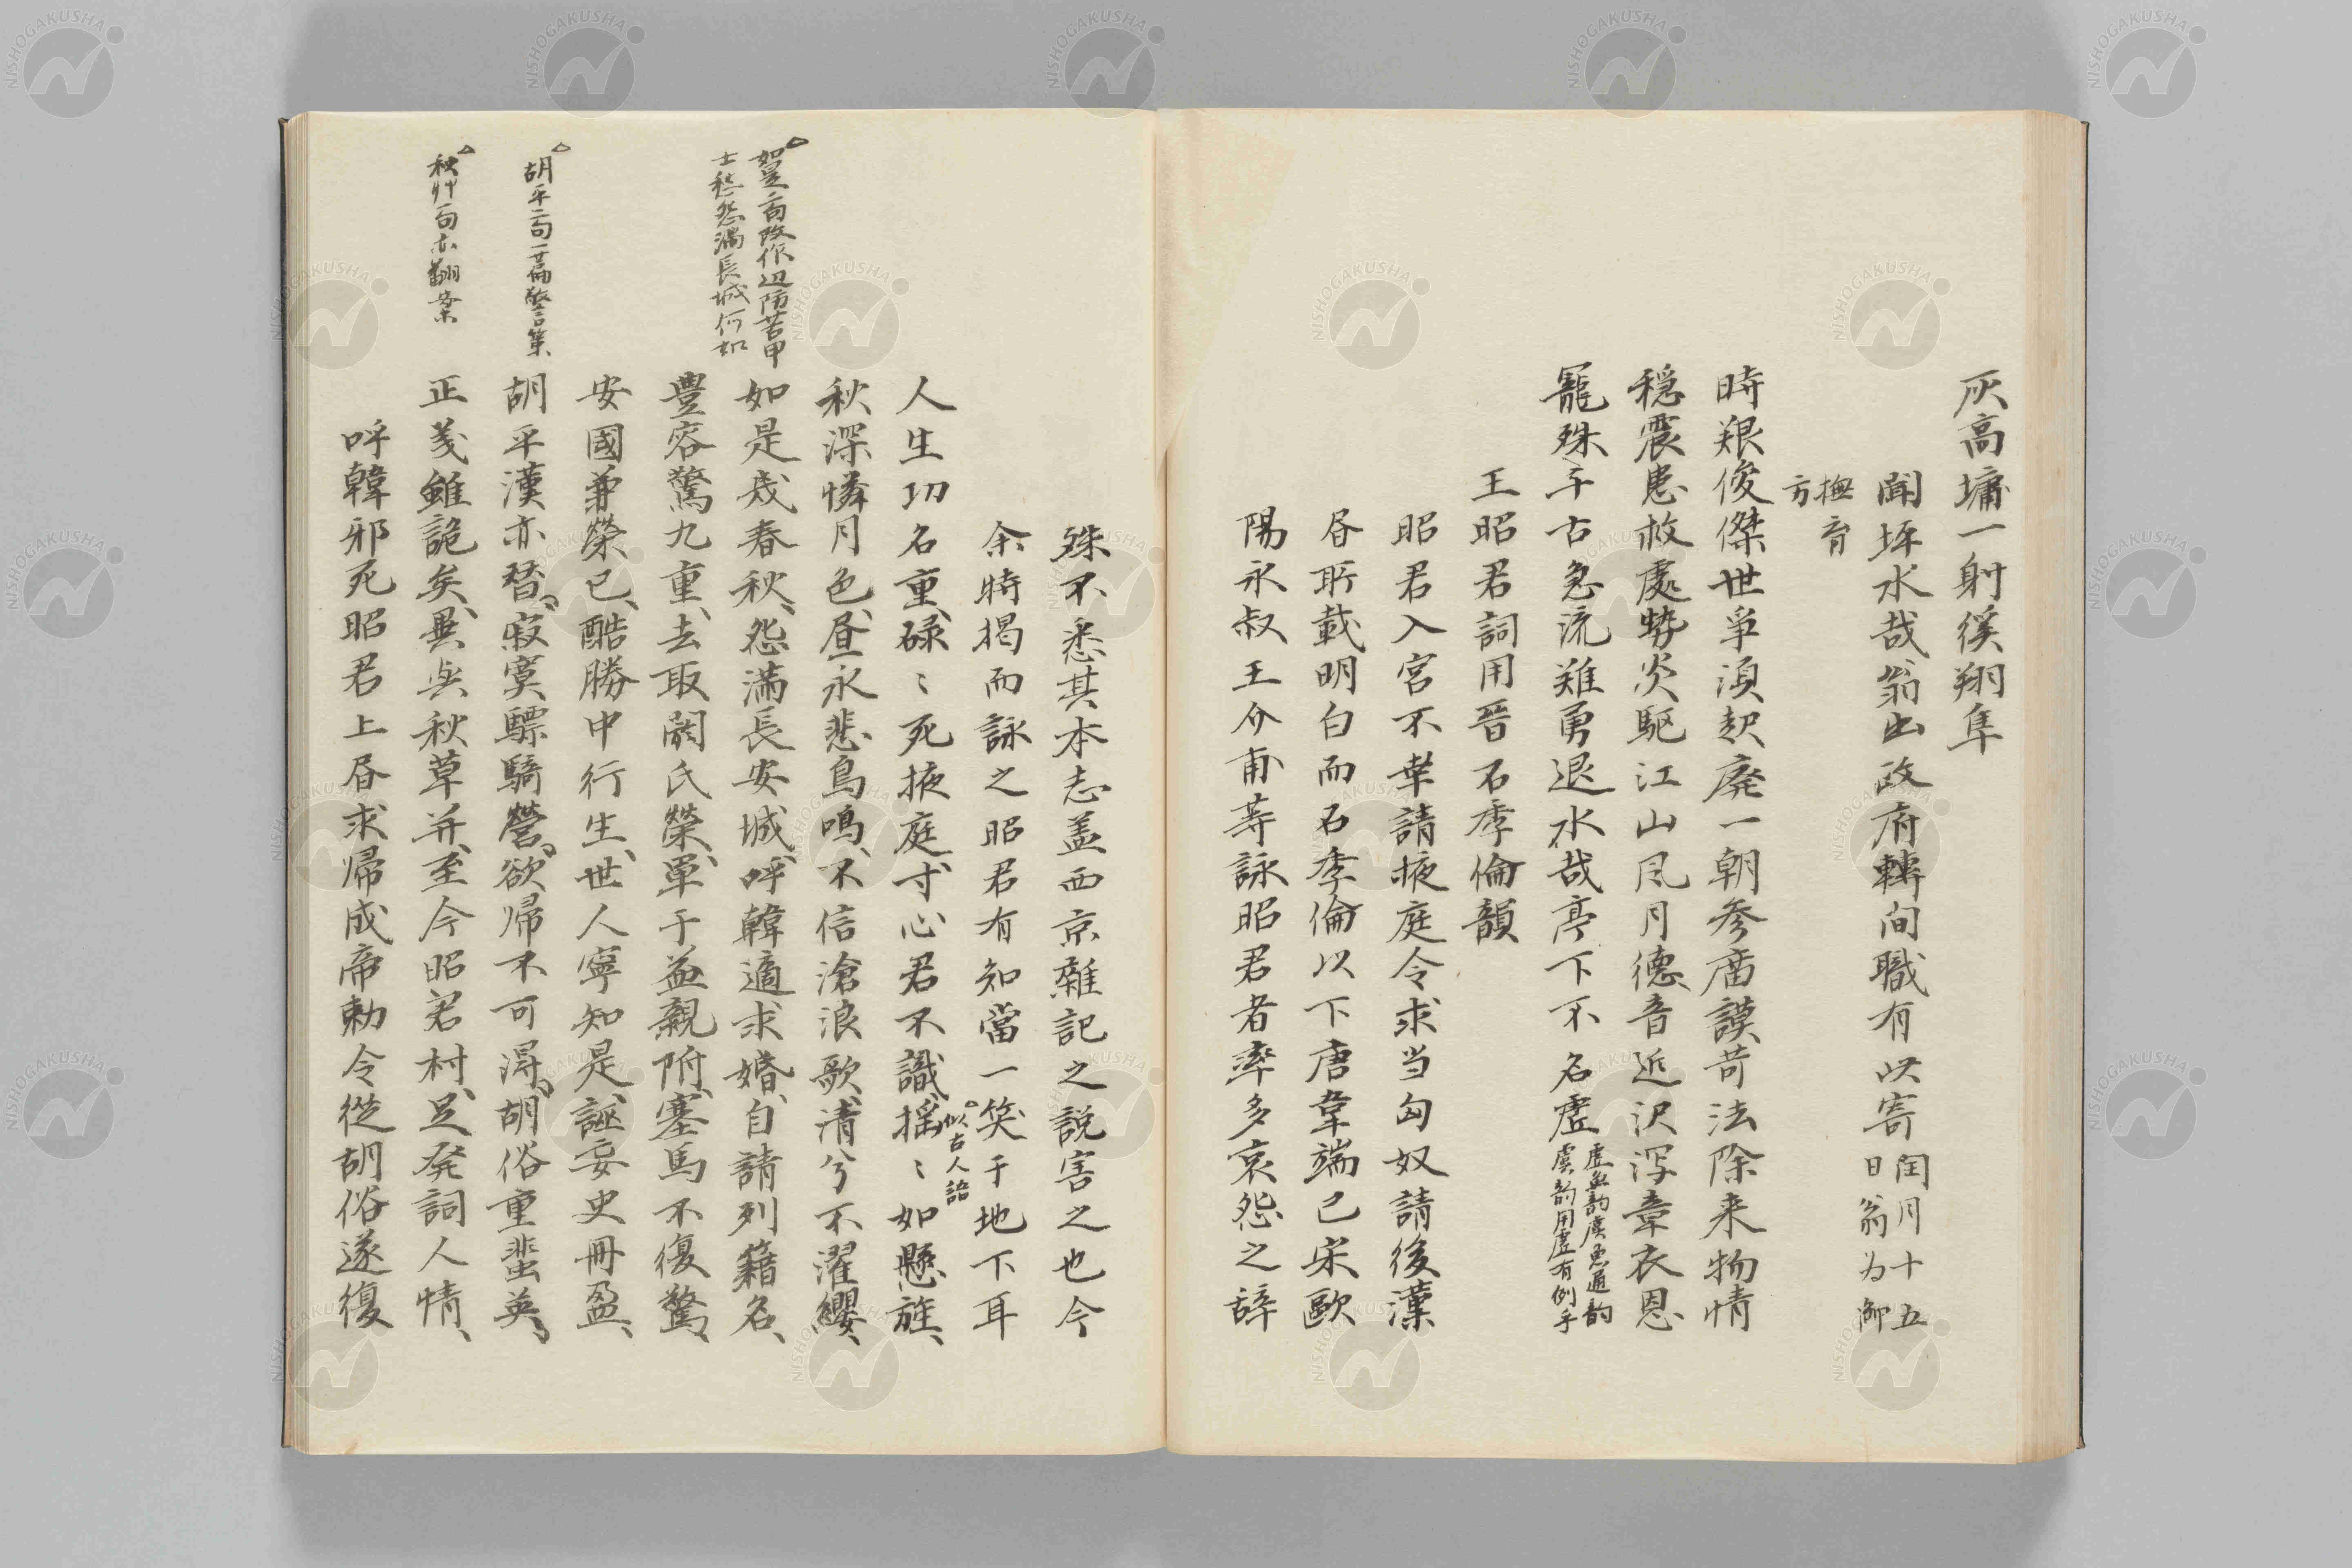 灰高墉一射徯翔隼
聞坏水哉翁出政府轉間職有此寄 閏月十五
日翁为御
撫育
方
時艱俊傑世爭湏起廃一朝参庿謨苛法除来物情
穏震患救處勢炎駆江山风月德音近沢浮章衣恩
寵殊千古急流難勇退水哉亭下不名虚
虚魚韵虞魚通韵
虞韵用虚有例乎
王昭君詞用晉石季倫韻
昭君入宮不幸請掖庭令求当匈奴請後漢
昏所載明白而石季倫以下唐韋端己宋歐
陽永叔王介甫䓁詠昭君者率多哀怨之辞
殊不悉其本志盖西京雜記之説害之也今
余時揭而詠之昭君有知當一笑于地下耳
人生功名重碌〻死掖庭寸心君不識揺〻如懸旌
似古人語
秋深憐月色昼永悲鳥鳴不信滄浪歌清兮不濯纓
如是幾春秋怨滿長安城呼韓適求婚自請列籍名
如是二句改作辺防苦甲
士愁怨満長城何如
豊容驚九重去取閼氏榮單于益親附塞馬不復驚
安國兼榮已酷勝中行生世人寧知是誣妄史冊盈
胡平漢亦替寂寞驃騎營欲帰不可得胡俗重蜚英
胡平二句一篇警策
正義雖詭矣異与秋草并至今昭君村足発詞人情
秋艸句亦翻案
呼韓邪死昭君上昏求帰成帝勅令從胡俗遂復